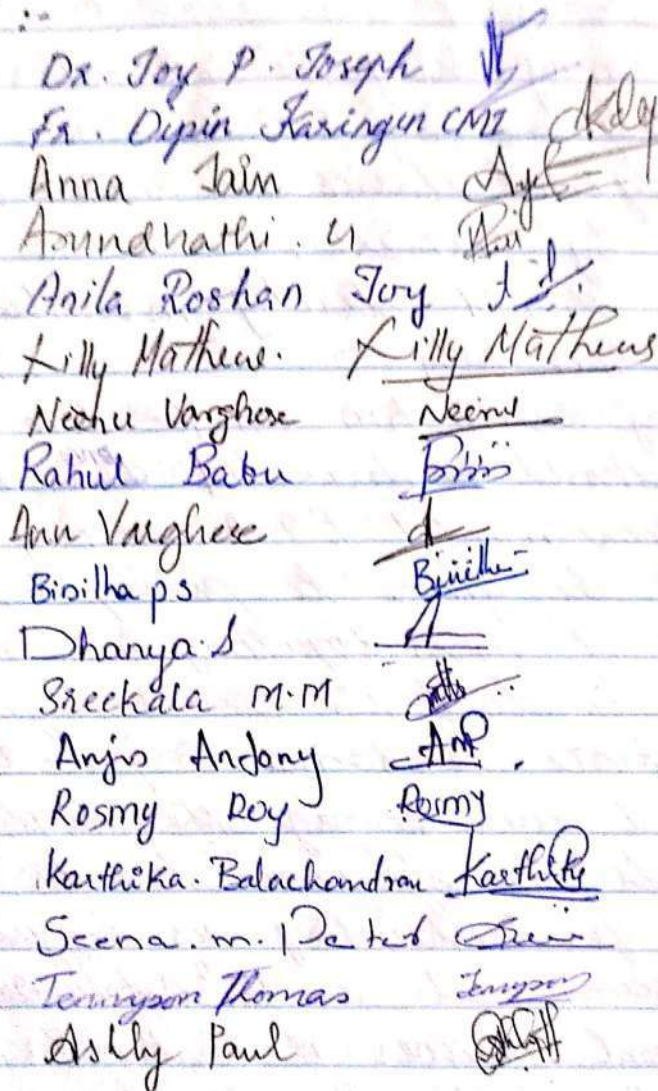 Dr. Joy P. Joseph
Fr. Dipin Karingen CMI
Anna Jain
Arundhathi. U
Anila Roshan Joy
Lilly Mathews. Lilly Mathews
Neenu Varghese Neenu
Rahul Babu
Ann Varghese
Binitha p s
Dhanya. S
Sreekala M.M
Anjns Andony
Rosmy Roy Rosmy
Karthika. Balachandran Karthika
Seena. m. Peter
Tennyson Thomas Tennyson
Ashly Paul